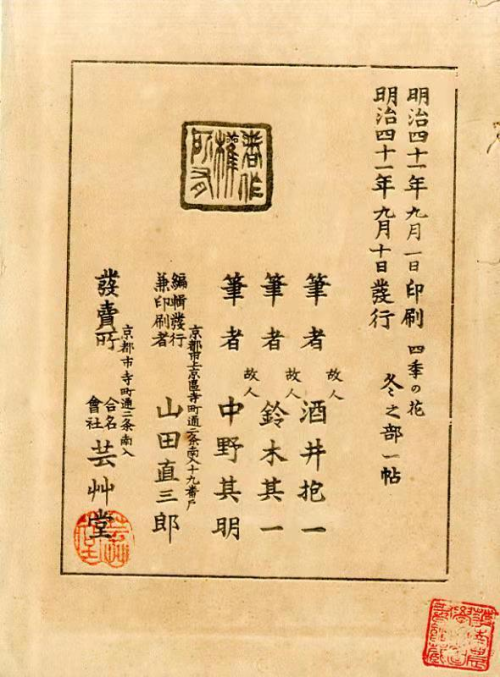 明治四十一年九月一日印刷
明治四十一年九月十日發行
四季の花
冬之部一帖
筆者 故人 酒井抱一
筆者 故人 鈴木其一
筆者 故人 中野其明
京都市上京區寺町通二条南入十九番戸
編輯發行
兼印刷者
山田直三郎
京都市寺町通二条南入
發賣所
合名
會社
芸艸堂
著作
權
所有
芸艸堂